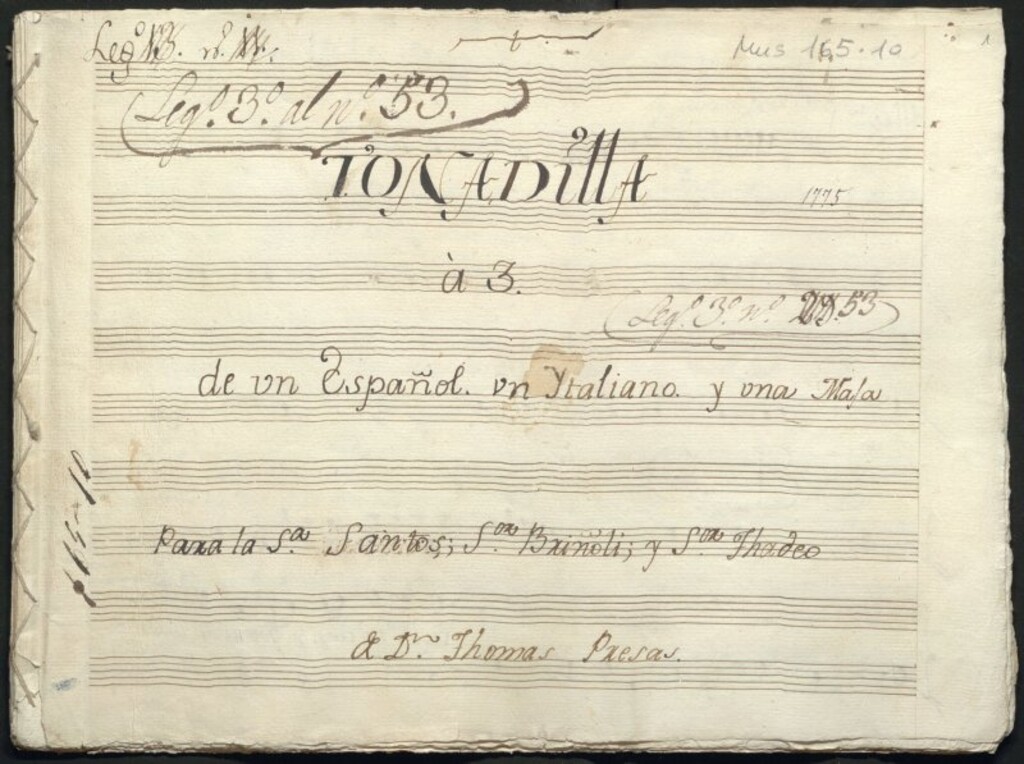 Leg.º nº
Mus 165-10
1
Leg.º 3.º al n.º 53.
TONADIllA
1775
à 3.
Leg.º 3.º n.º 53
de vn Español. vn Ytaliano. y vna Maja
165-10
Para la S.ra Santos; S.or Briñoli; y S.or Thadeo
de D.n Thomas Presas.